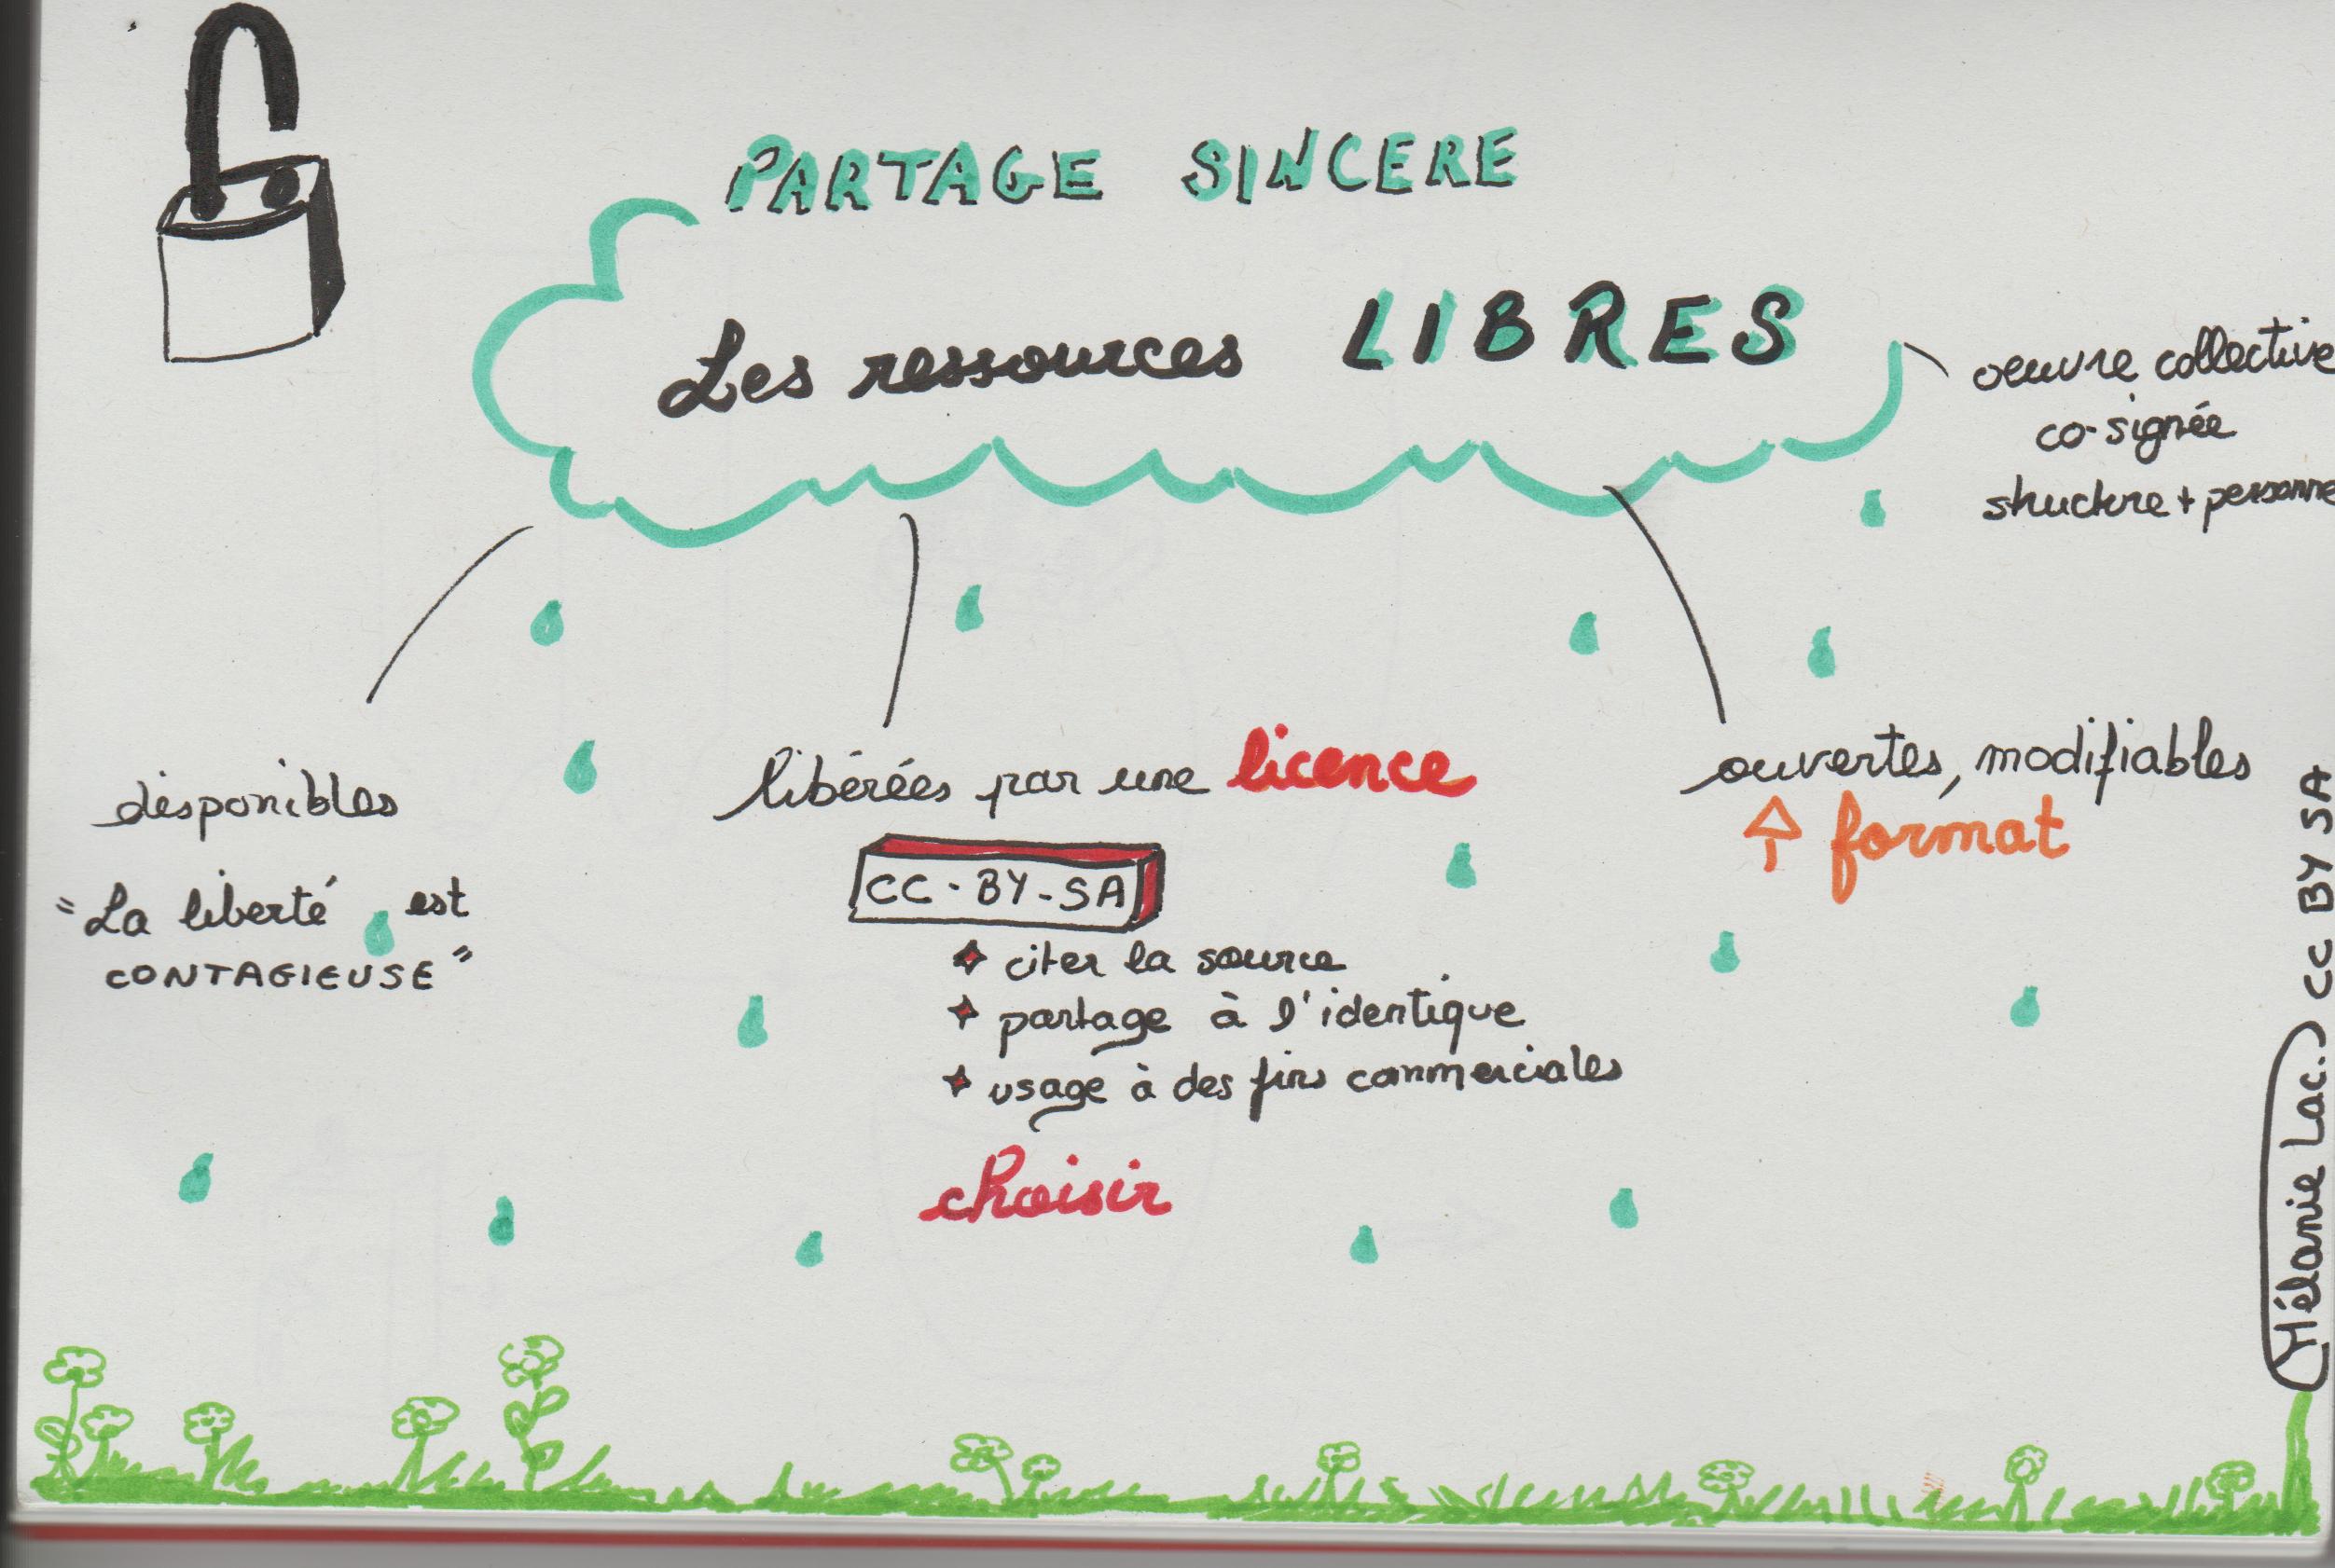 PARTAGE SINCERE
Les ressources LIBRES
oeuvre collective
co-signée
structure + personne
disponibles
"La liberté est
CONTAGIEUSE"
libérées par une licence
CC-BY-SA
citer la source
partage à l'identique
usage à des fins commerciales
choisir
ouvertes, modifiables
format
Mélanie Lac. CC BY SA